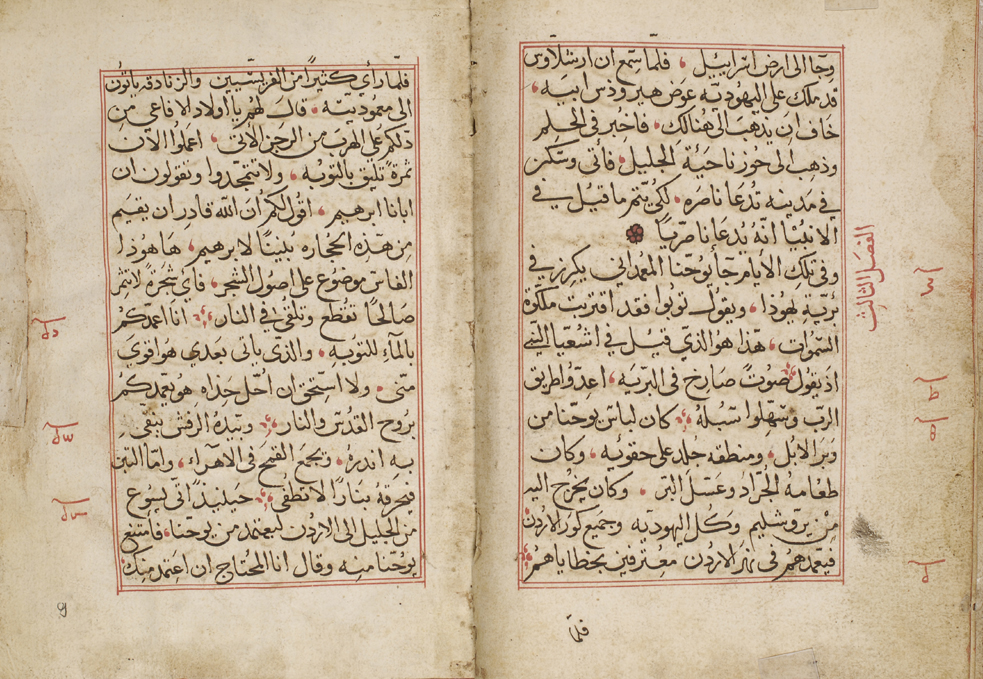 وجا الى ارض اسراييل ۰ فلمّا سمع ان ارشلاوس
قد ملك على اليهوديه عوض هيرودس ابيه ۰
خاف ان يذهب الى هنالك ۰ فاخبر في الحلم
وذهب الى حوز ناحية الجليل ۰ فاتى وسكن
في مدينه تدعا ناصره ۰ لكي يتم ما قيل في
الانبيا انه يدعا ناصريا
وفي تلك الايام جا يوحنا المعمداني يكرز في
بريّة يهوذا ۰ ويقول توبوا فقد اقتربت ملكوة
السموات ۰ هذا هو الذي قيل في اشعيا النبي
اذ يقول صوت صارخ في البريه ۰ اعدّوا طريق
الرب وسهلوا سبله كان لباس يوحنا من
وبر الابل ۰ ومنطقه جلد على حقويه ۰ وكان
طعامه الجراد وعسل البر ۰ وكان يخرج اليه
من يروشليم وكل اليهوديه وجميع كور الاردن
فيعمدهم في نهر الاردن معترفين بخطاياهم
فلمّا
الفصل الثالث
فلمّا راي كثيرًا من الفريسيين والزنادقه ياتون
الى معموديته ۰ قال لهم يا اولاد الافاعي من
دلكم على الهرب من الرجز الاتي ۰ اعملوا الان
ثمرة تليق بالتوبه ۰ ولا تتمجدوا وتقولون ان
ابانا ابرهيم ۰ اقول لكم ان الله قادر ان يقيم
من هذه الحجاره بنينًا لابرهيم ۰ ها هوذا
الفاس موضوع على اصول الشجر ۰ فاي شجرة لا تثمر
صالحًا تقطع وتلقى في النار انا اعمدكم
بالمآء للتوبه ۰ والذي ياتي بعدي هو اقوى
منّي ۰ ولا استحق ان احل حذاه هو يعمدكم
بروح القدس والنار وبيده الرفش ينقي
به اندره ۰ ويجمع القمح في الاهراء ۰ وامّا التبن
فيحرقه بنار لا تطفى حينيذ اتى يسوع
من الجليل الى الاردن ليعتمد من يوحنا ۰ فامتنع
يوحنا منه وقال انا المحتاج ان اعتمد منك